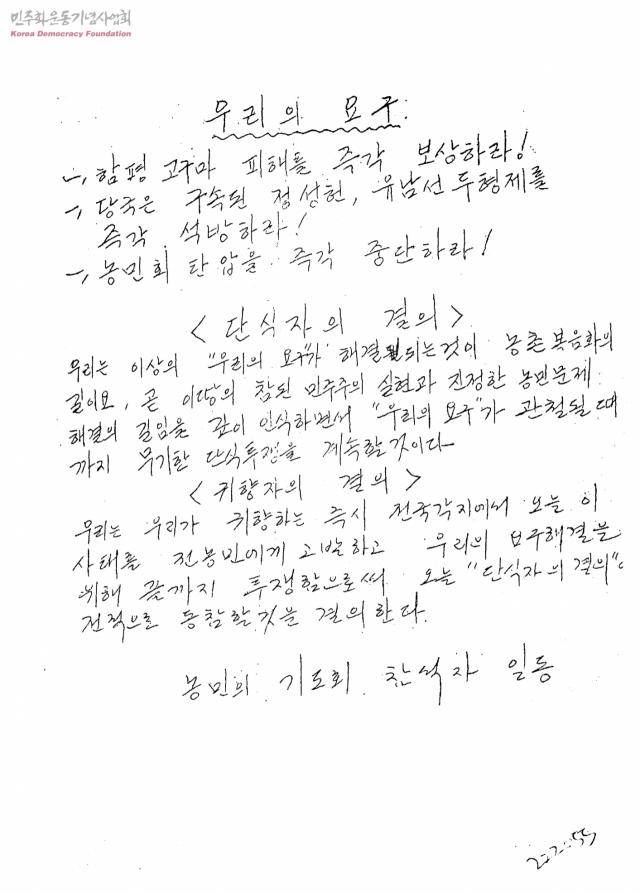 민주화운동기념사업회
Korea Democracy Foundation
우리의 요구.
一, 함평 고구마 피해를 즉각 보상하라!
一, 당국은 구속된 정성헌, 유남선 두형제를
즉각 석방하라!
一, 농민회 탄압을 즉각 중단하라!
< 단식자의 결의 >
우리는 이상의 "우리의 요구"가 해결되는것이 농촌복음화의
길이요, 곧 이땅의 참된 민주주의 실현과 진정한 농민문제
해결의 길임을 깊이 인식하면서 "우리의 요구"가 관철될 때
까지 무기한 단식투쟁을 계속할것이다
< 귀향자의 결의 >
우리는 우리가 귀향하는 즉시 전국각지에서 오늘 이
사태를 전농민에게 고발하고 우리의 요구해결을
위해 끝까지 투쟁함으로써 오늘 "단식자의 결의"에
전적으로 동참할것을 결의한다.
농민의 기도회 참석자 일동